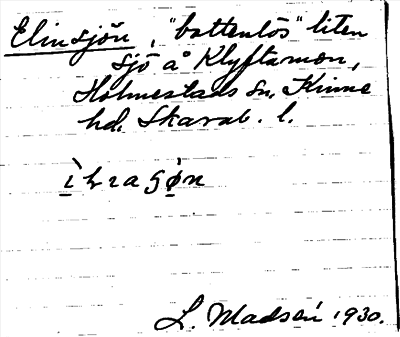 Elinsjön, "bottenlös" liten
sjö å Klyftamon,
Holmestads sn. Kinne
hd. Skarab. l.
L. Madsén 1930.